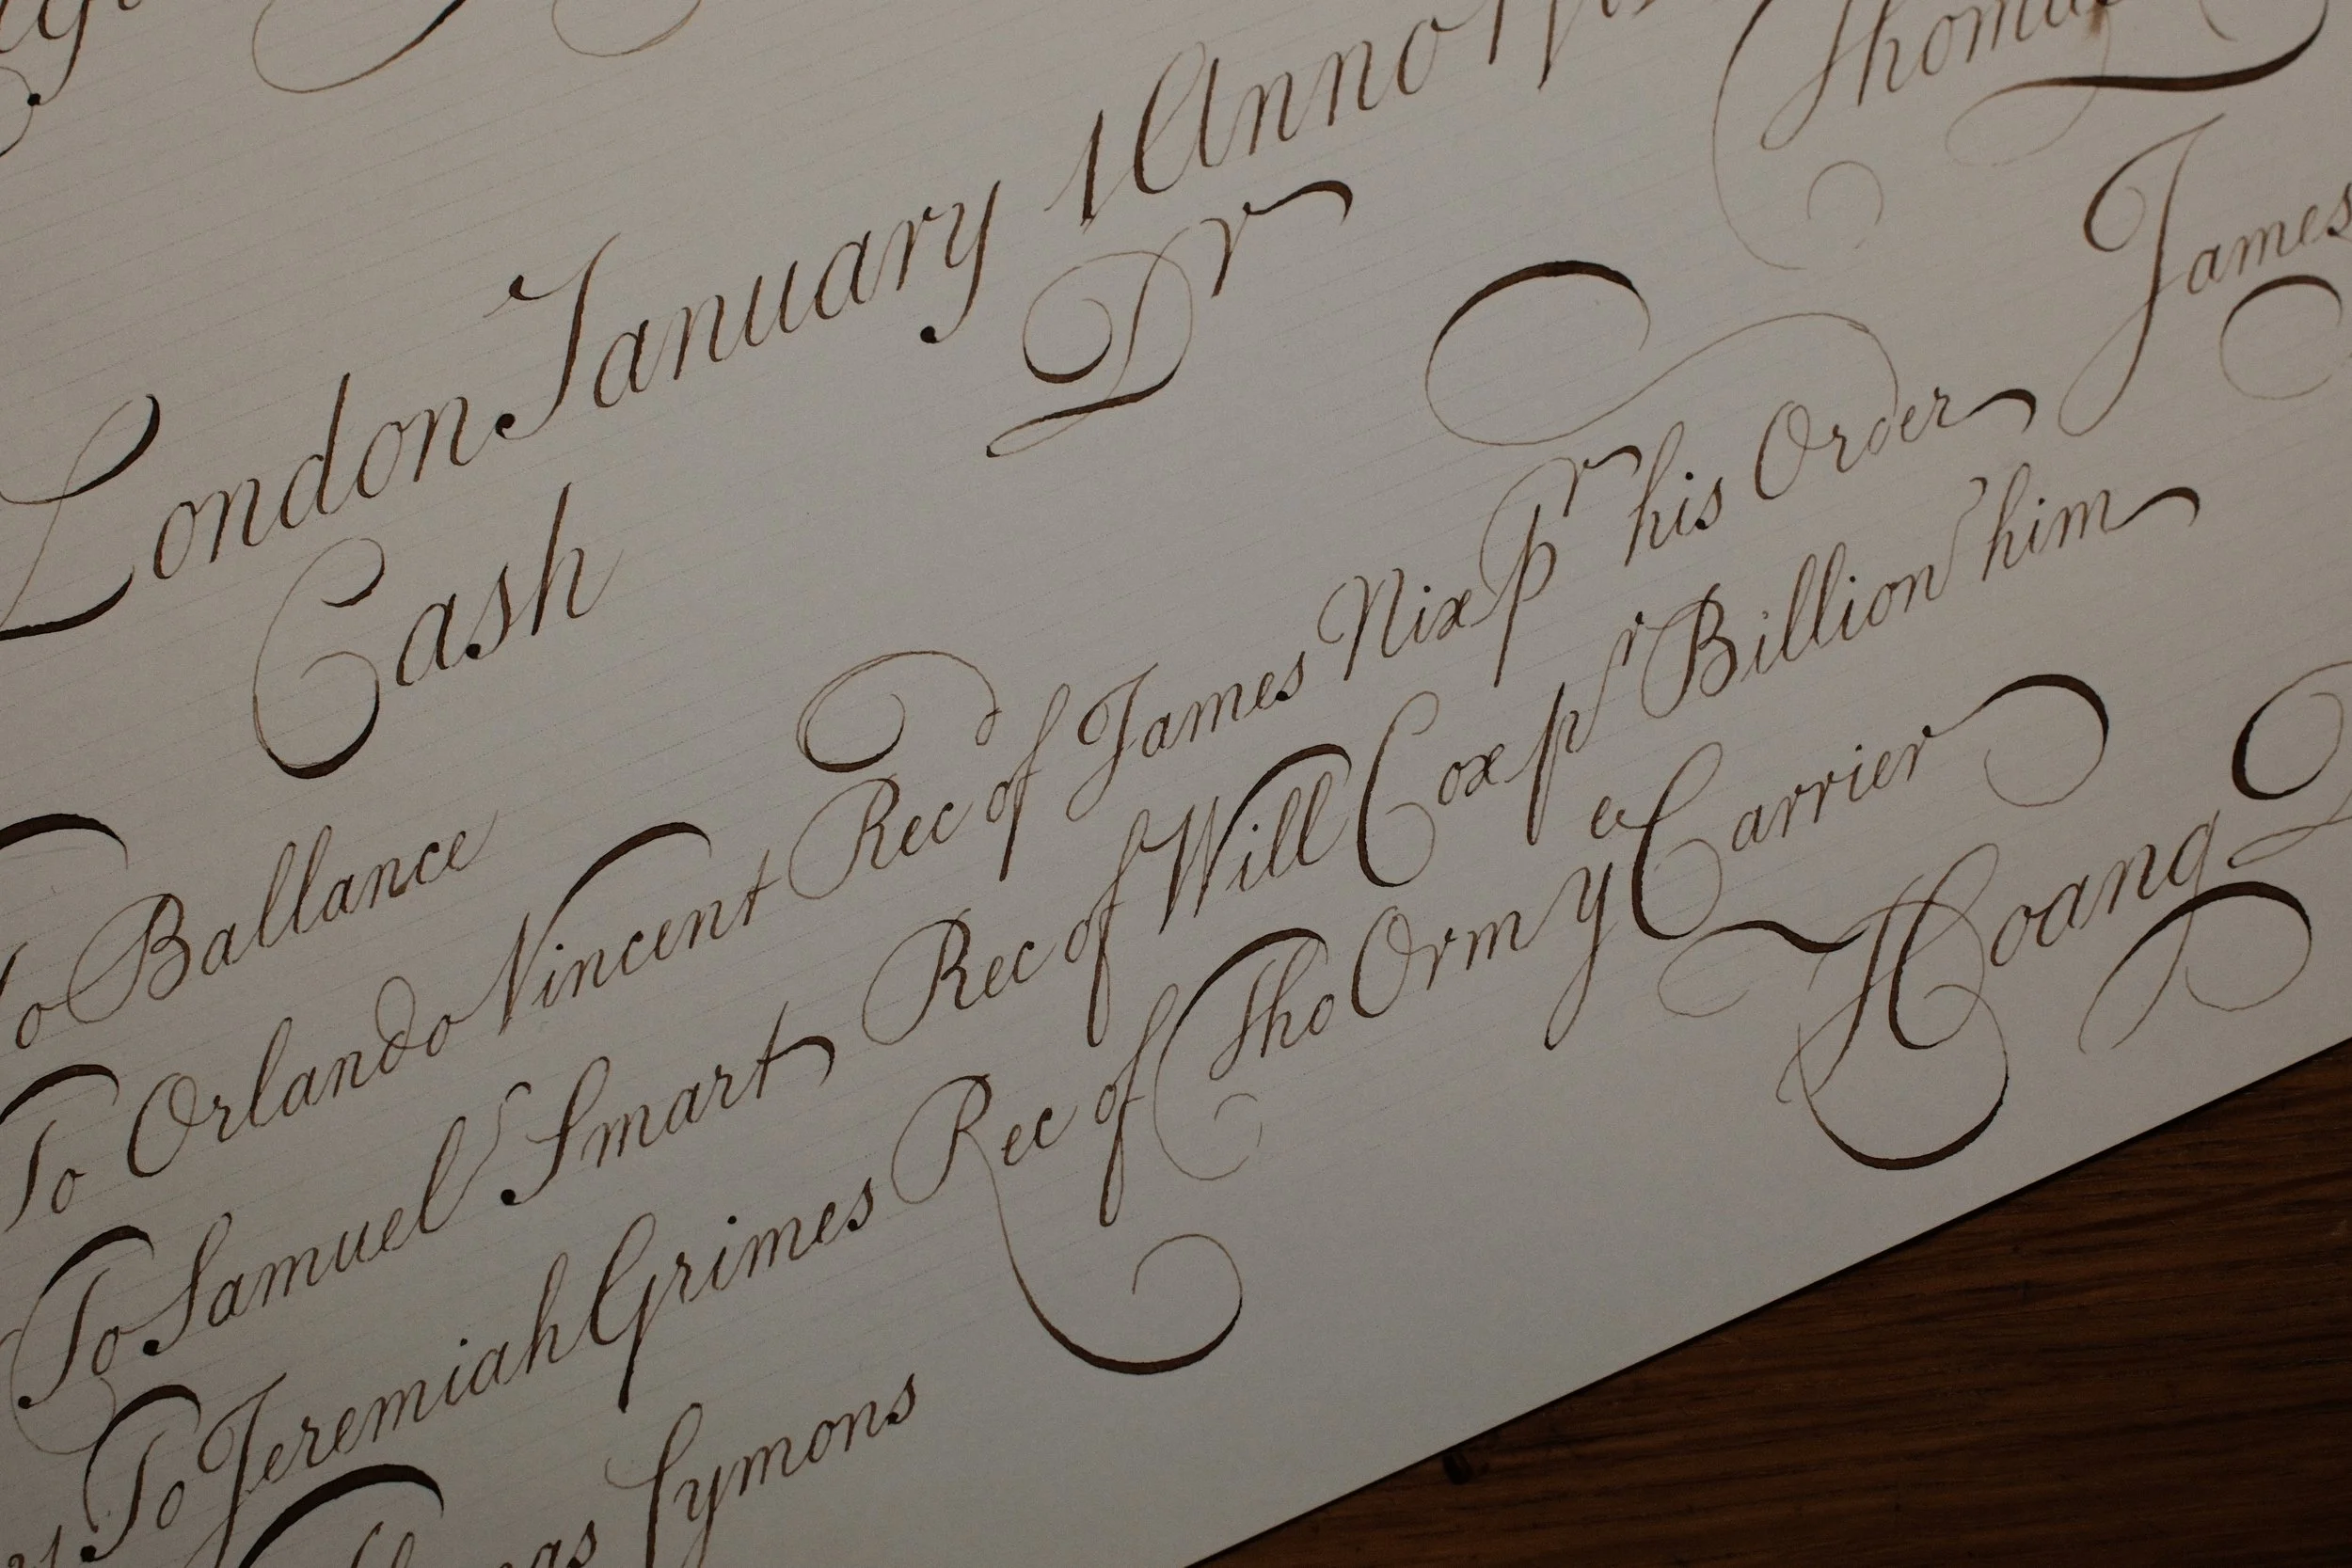 London January 1 Anno
Cash Dr
To Ballance
To Orlando Vincent Rec of James Nix pr his Order
To Samuel Smart Rec of Will Cox pr Bill on him
To Jeremiah Grimes Rec of Tho Orm ye Carrier
Symons
James
Hoang